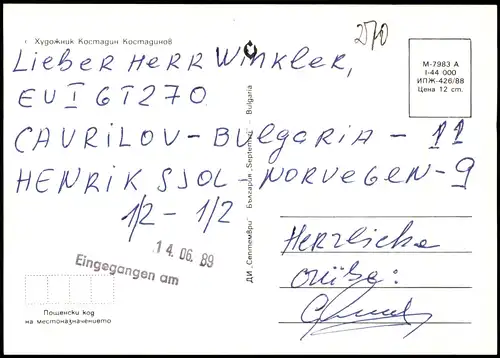 Художник Костадин Костадинов
270
М-7983 А
I-44 000
ИПЖ-426/88
Цена 12 ст.
LIEBER HERR WINKLER,
EU I GT270
GAVRILOV-BULGARIA - 11
HENRIK SJOL-NORVEGEN-9
1/2 - 1/2
14. 06. 89
Eingegangen am
ДИ „Септември" България „Septemvri" Bulgaria
HERZLICHE
Grüße:
Пощенски код
на местоназначението